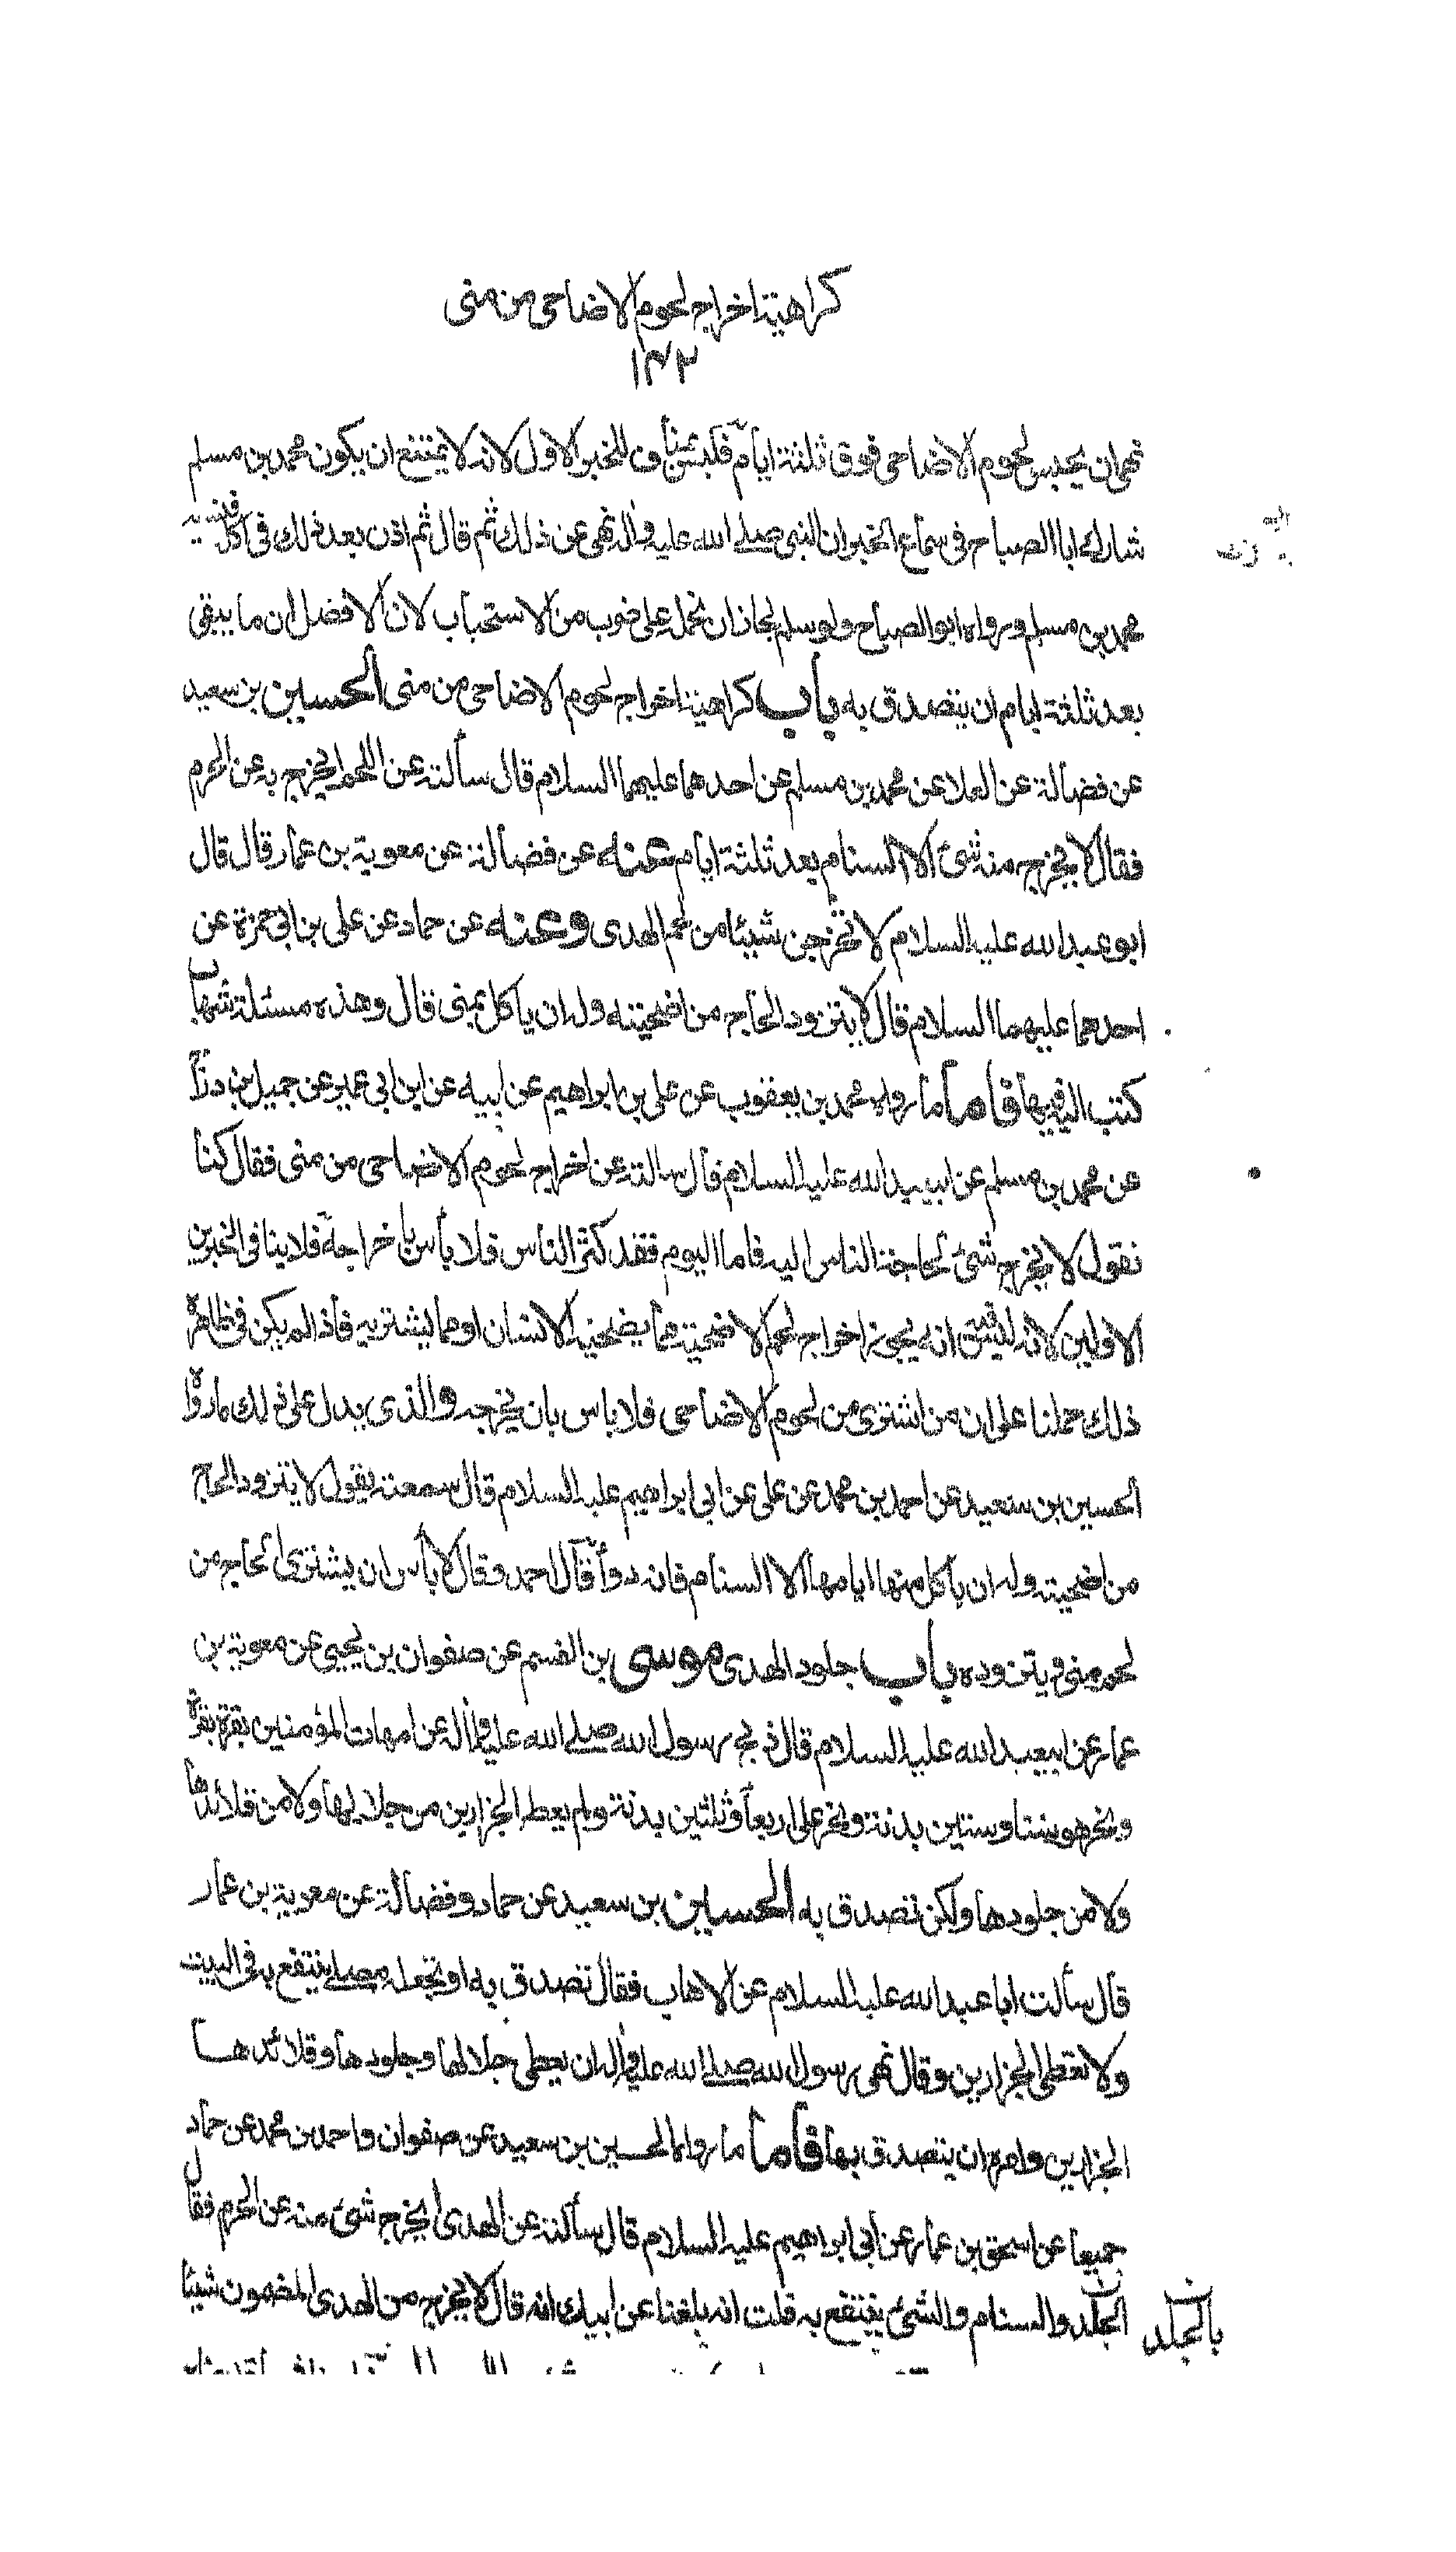 كراهية اخراج لحوم الاضاحى من منى
١٤٢
نهى ان يحبس لحوم الاضاحى فوق ثلثة ايام فليس بمناف للخبر الاول لانه لا يمتنع ان يكون محمد بن مسلم
شارك ابا الصباح فى سماع الخبر وان النبى صلى الله عليه واله نهى عن ذلك ثم قال ثم اذن بعد ذلك فى اكل
محمد بن مسلم ورواه ابو الصباح ولو سلم لجاز ان نحمله على ضرب من الاستحباب لان الافضل ان ما يبقى
بعد ثلثة ايام ان يتصدق به باب كراهية اخراج لحوم الاضاحى من منى الحسين بن سعيد
عن فضالة عن العلا عن محمد بن مسلم عن احدهما عليهما السلام قال سألته عن اللحم ايخرج به عن الحرم
فقال لا يخرج منه شئ الا السنام بعد ثلثة ايام عنه عن فضالة عن معوية بن عمار قال قال
ابو عبد الله عليه السلام لا تخرجن شيئا من لحم الهدى وعنه عن حماد عن على بن ابى حمزة عن
احدهما عليهما السلام قال لا يتزود الحاج من اضحيته وله ان ياكل بمنى قال وهذه مسئلة شهاب
كتب اليه فيها فاما ما رواه محمد بن يعقوب عن على بن ابراهيم عن ابيه عن ابن ابى عمير عن جميل بن دراج
عن محمد بن مسلم عن ابيعبد الله عليه السلام قال سالته عن اخراج لحوم الاضاحى من منى فقال كنا
نقول لا يخرج شئ لحاجة الناس اليه فاما اليوم فقد كثر الناس فلا بأس باخراجه فلا ينافى الخبرين
الاولين لانه ليس فيه انه يجوز اخراج لحم الاضحية مما يضحيه الانسان او مما يشتريه فاذا لم يكن فى ظاهره
ذلك حملنا على ان من اشترى من لحوم الاضاحى فلا باس بان يخرجه والذى يدل على ذلك ما رواه
الحسين بن سعيد عن احمد بن محمد عن على عن ابى ابراهيم عليه السلام قال سمعته يقول لا يتزود الحاج
من اضحيته وله ان ياكل منها ايامها الا السنام فانه دواء قال احمد وقال لا بأس ان يشترى الحاج من
لحم منى ويتزوده باب جلود الهدى موسى بن القسم عن صفوان بن يحيى عن معوية بن
عمار عن ابيعبد الله عليه السلام قال ذبح رسول الله صلى الله عليه واله عن امهات المؤمنين بقرة بقرة
ونحر هو ستا وستين بدنة ونحر على اربعا وثلثين بدنة ولم يعط الجزارين من جلالها ولا من قلائدها
ولا من جلودها ولكن تصدق به الحسين بن سعيد عن حماد وفضالة عن معوية بن عمار
قال سألت ابا عبد الله عليه السلام عن الاهاب فقال تصدق به او تجعله مصلى ينتفع به فى البيت
ولا تعطى الجزارين وقال نهى رسول الله صلى الله عليه واله ان يعطى جلالها وجلودها وقلائدها
الجزارين وامر ان يتصدق بها فاما ما رواه الحسين بن سعيد عن صفوان واحمد بن محمد عن حماد
جميعا عن اسحق بن عمار عن ابى ابراهيم عليه السلام قال سألته عن الهدى ايخرج شئ منه عن الحرم فقال
الجلد والسنام والشئ ينتفع به قلت انه بلغنا عن ابيك انه قال لا يخرج من الهدى المضمون شيئا
بالجلد